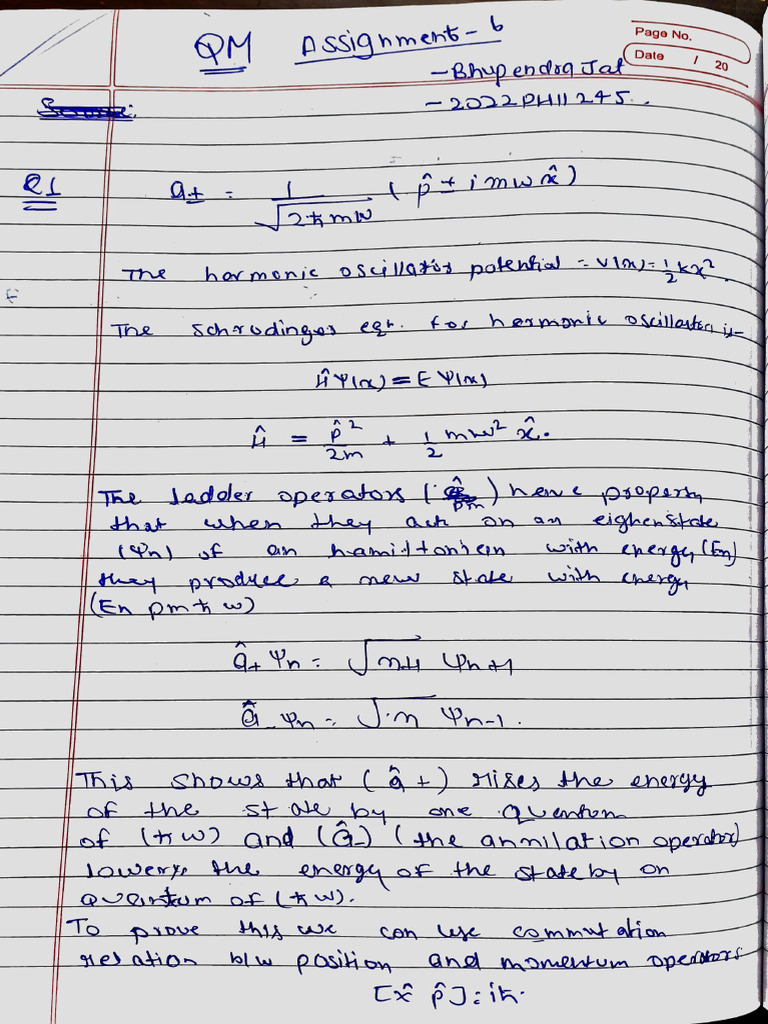 QM Assignment-6
Page No.
Date / 20
- Bhupendra Jat
- 2022PH11245.
Q1 a± = 1/√2ħmω ( p̂ ± i mω x̂ )
The harmonic oscillator potential = V(x) = 1/2 kx².
The Schrodinger eqt. for harmonic oscillator is-
Ĥ Ψ(x) = E Ψ(x)
Ĥ = p̂²/2m + 1/2 mω² x̂.
The ladder operators ( pm ) hence property
that when they act on an eighenstate
(Ψn) of an hamiltonien with energy (En)
they produce a new state with energy
(En pm ħ ω)
â+ Ψn = √n+1 Ψn+1
â- Ψn = √n Ψn-1.
This shows that (â+) rises the energy
of the state by one quentom
of (ħω) and (â-) (the annilation operator)
lowerys the energy of the state by on
quantum of (ħω).
To prove this we can use commutation
relation b/w position and momentum operators
[x̂ p̂] = iħ.